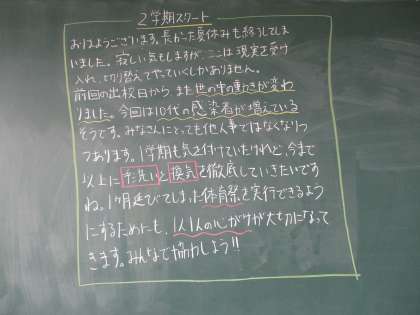 2学期スタート
おはようございます。長かった夏休みも終わってしまい
ました。寂しい気もしますが、ここは現実を受け
入れ、切り替えてやっていくしかありません。
前回の出校日から、また世の中の動きが変わ
りました。今回は10代の感染者が増えている
そうです。みなさんにとっても他人事ではなくなりつ
つあります。1学期も気を付けていたけれど、今まで
以上に手洗いと換気を徹底していきたいです
ね。1ヶ月延びてしまった体育祭を実行できるよう
にするためにも、1人1人の心がけが大切になって
きます。みんなで協力しよう!!